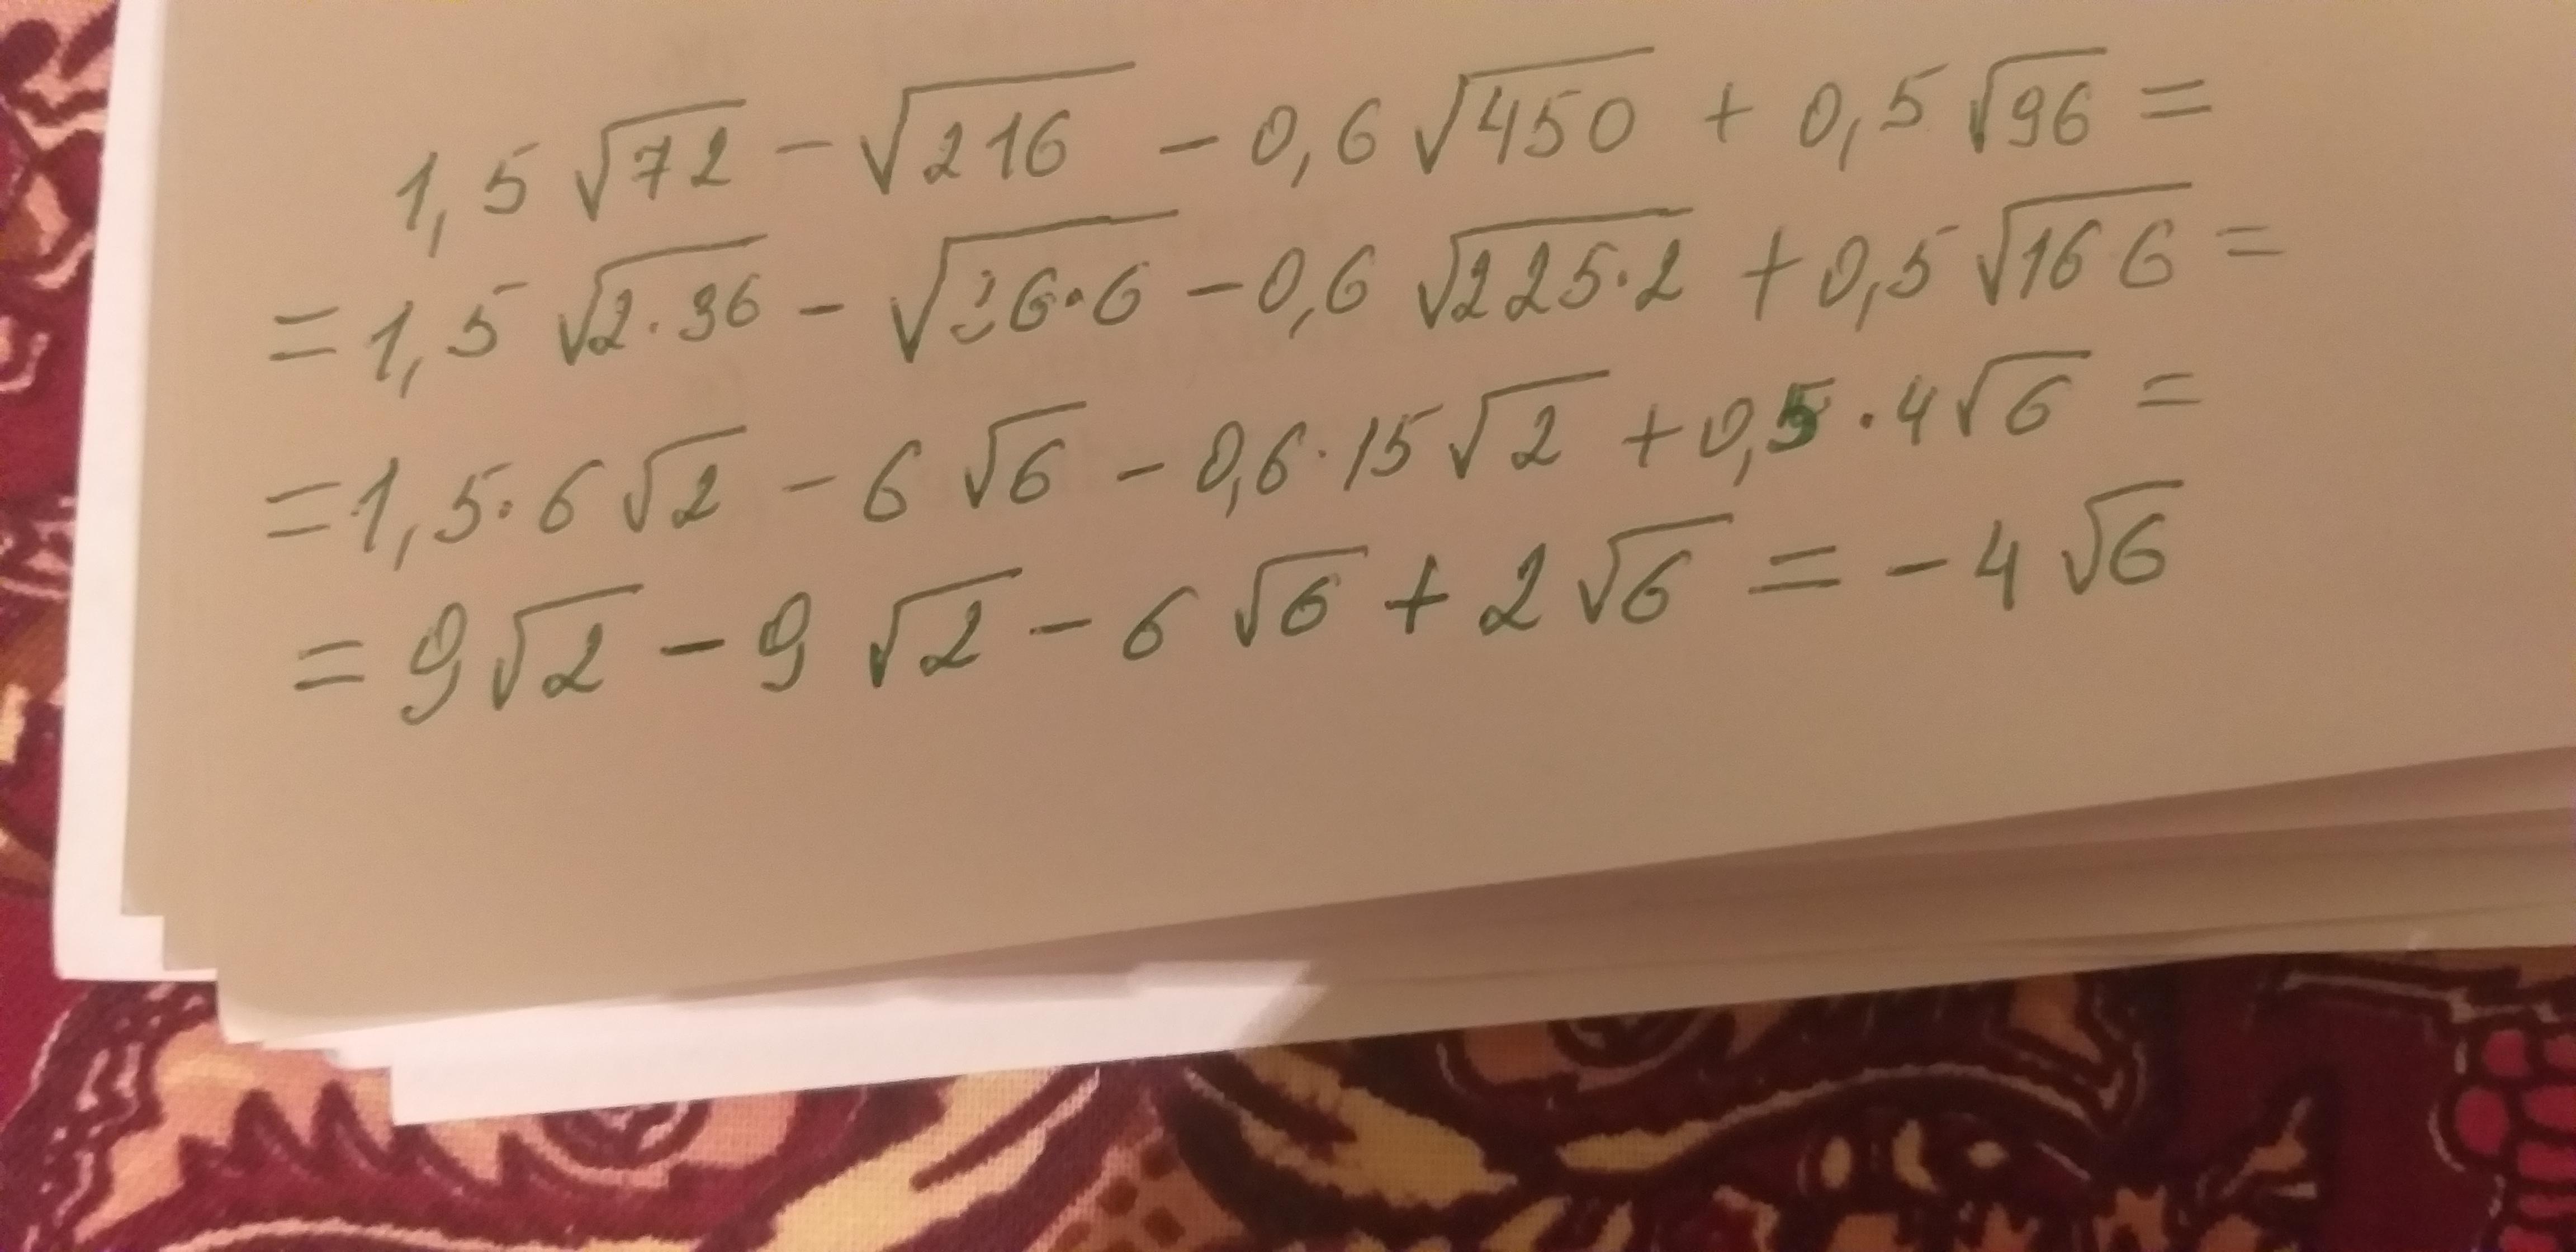 1,5 √72 - √216 - 0,6 √450 + 0,5 √96 =
= 1,5 √2·36 - √36·6 - 0,6 √225·2 + 0,5 √16 6 =
= 1,5·6 √2 - 6 √6 - 0,6·15 √2 + 0,5·4 √6 =
= 9 √2 - 9 √2 - 6 √6 + 2 √6 = -4 √6